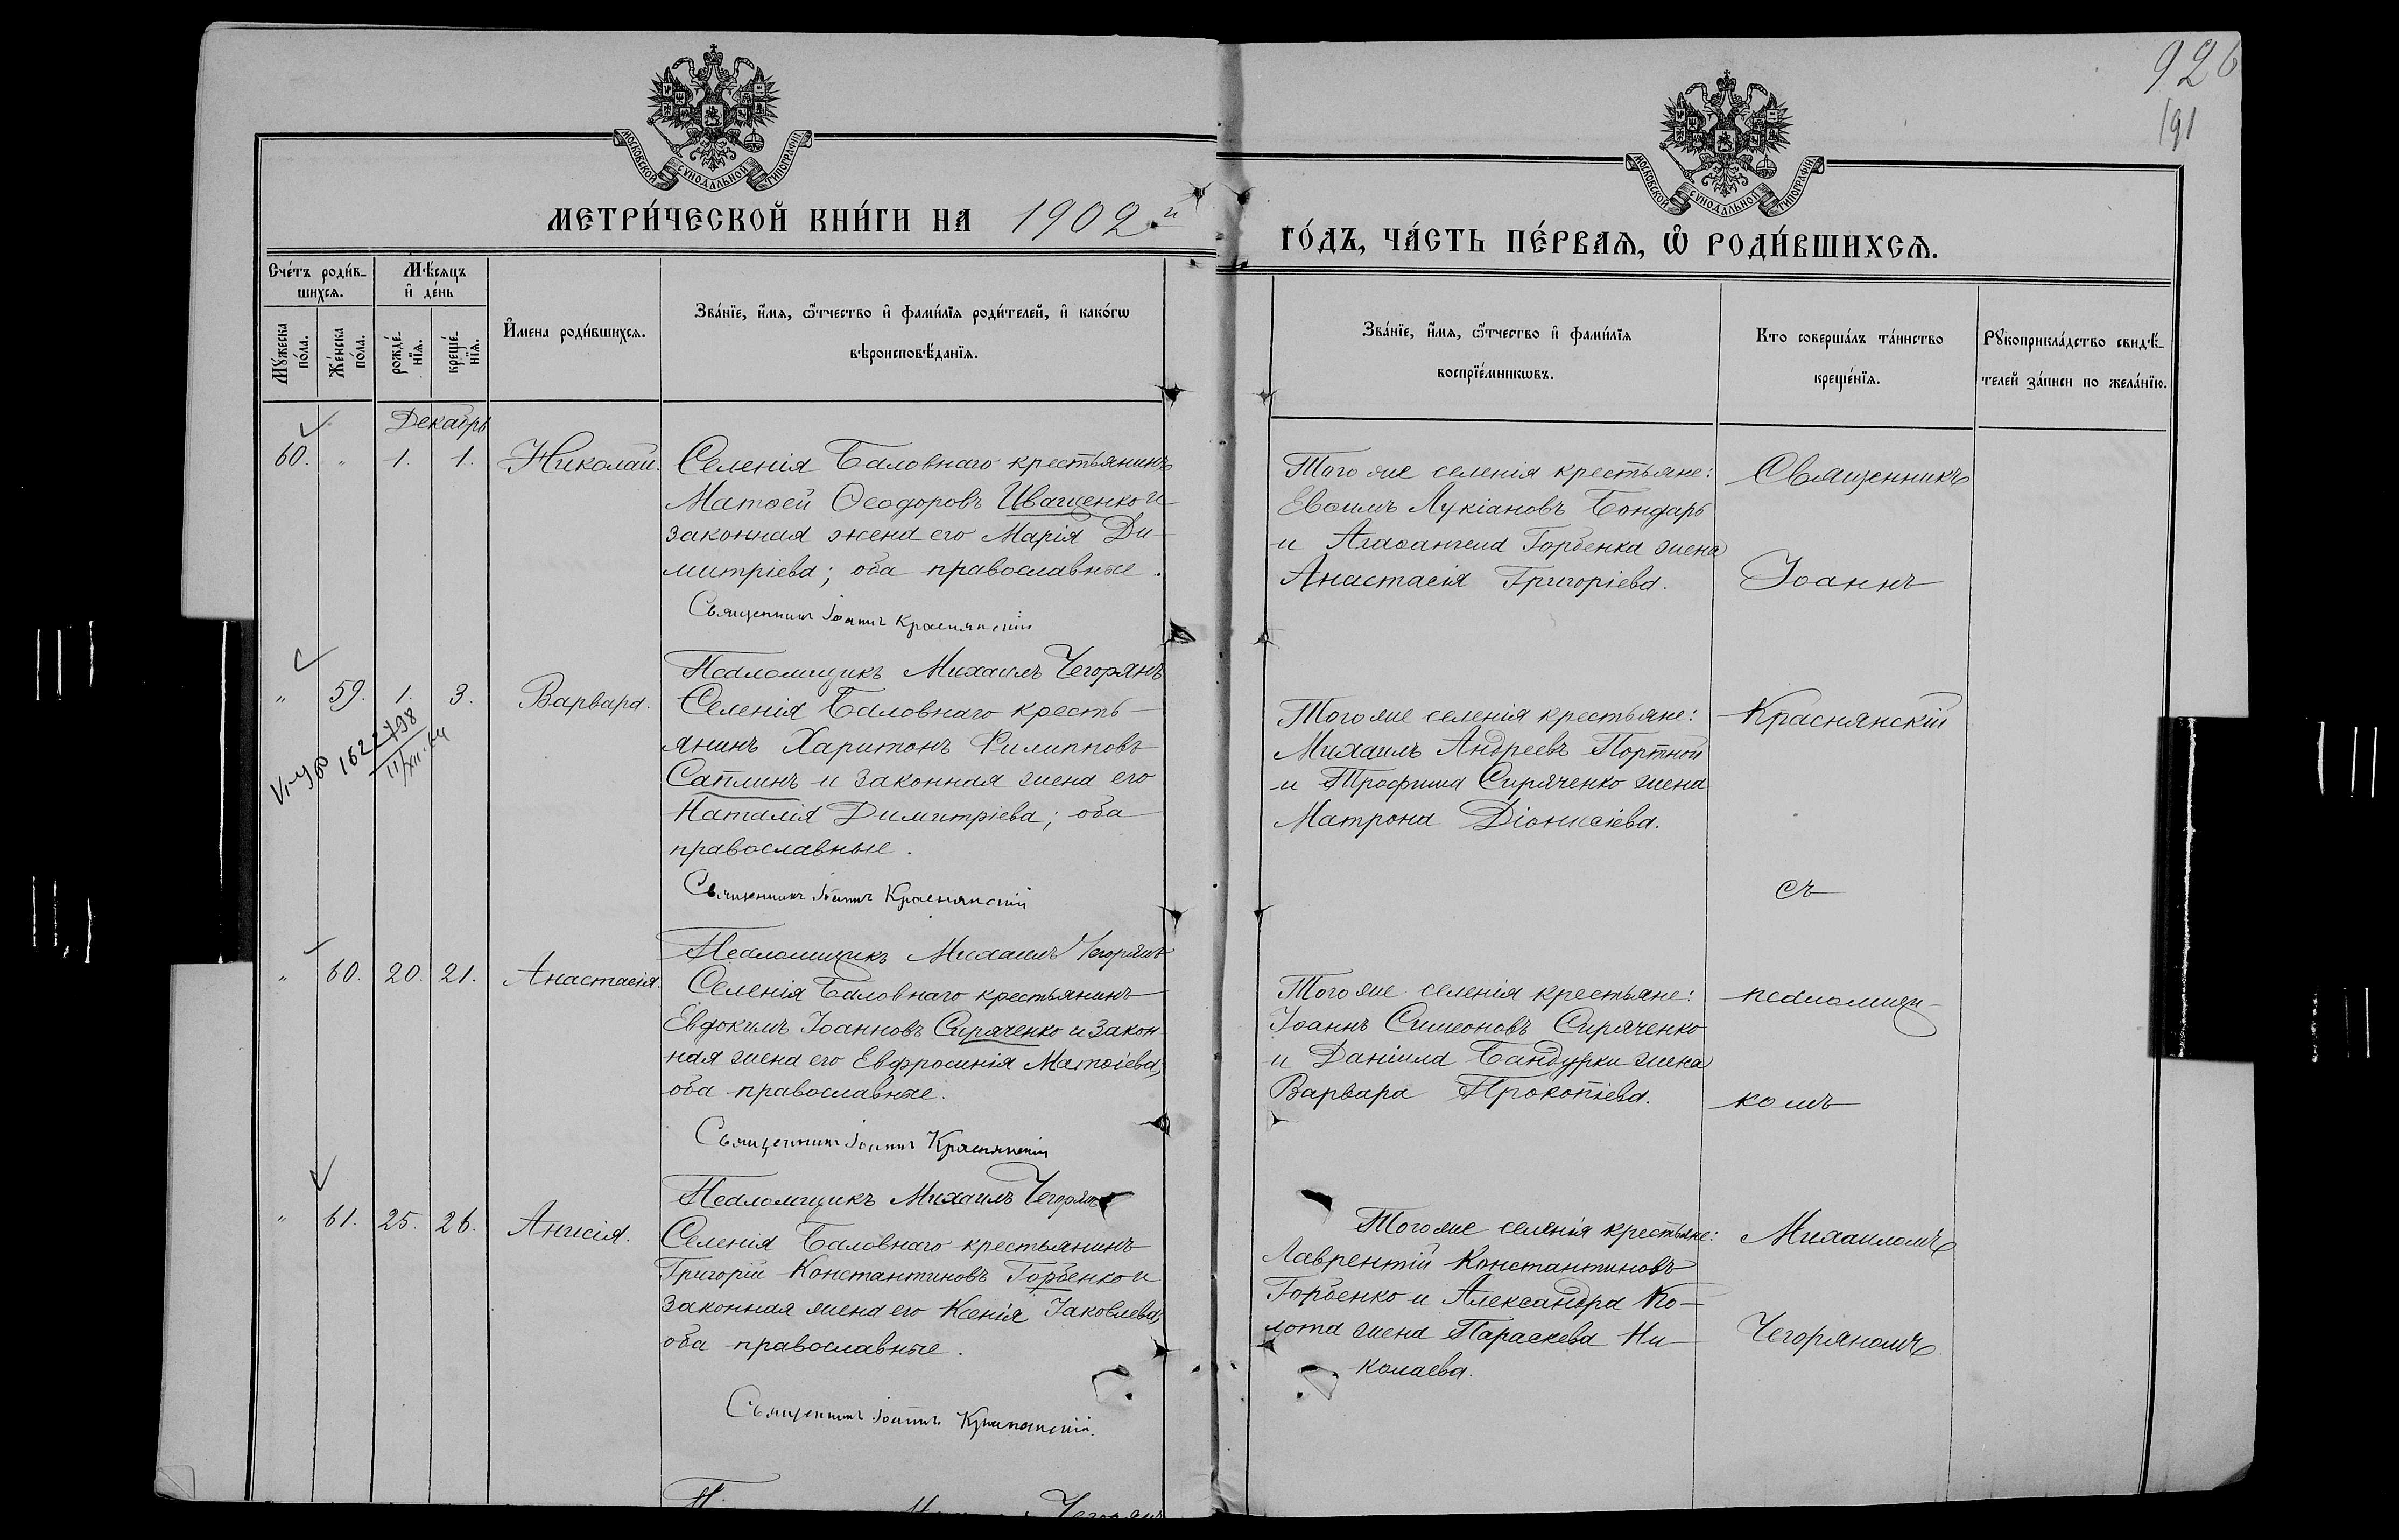 926
191
МОСКОВСКОЙ СУНОДАЛЬНОЙ ТИПОГРАФІИ
МОСКОВСКОЙ СУНОДАЛЬНОЙ ТИПОГРАФІИ
МЕТРИ́ЧЕСКОЙ КНИ́ГИ НА 1902 й
ГО́ДЪ, ЧА́СТЬ ПЕ́РВАѦ, Ѡ РОДИ́ВШИХСѦ.
Сче́тъ роди́в-
шихсѧ.
Мꙋжеска по́ла.
Же́нска по́ла.
Мѣ́сяцъ
и҆ де́нь
рожде́-
нїѧ.
креще́-
нїѧ.
И҆мена роди́вшихсѧ.
Зва́нїе, и҆́мѧ, ѻ҆́тчество и҆ фами́лїѧ роди́телей, и҆ како́гѡ
вѣроисповѣ́данїѧ.
Зва́нїе, и҆́мѧ, ѻ҆́тчество и҆ фами́лїѧ
воспрїе́мникѡвъ.
Кто соверша́лъ та́инство
креще́нїѧ.
Рꙋкоприкла́дство свидѣ́-
телей за́писи по жела́нїю.
Декабрь
60. " 1. 1. Николай.
Селенія Баловнаго крестьянинъ
Матѳей Ѳеодоровъ Иващенко и
законная жена его Марія Ди-
митріева; оба православные.
Священникъ Іоаннъ Краснянскій
Псаломщикъ Михаилъ Чегорянъ
Того же селенія крестьяне:
Евѳимъ Лукіановъ Бондарь
и Агаѳангела Горбенка жена
Анастасія Григоріева.
Священникъ
Іоаннъ
" 59. 1. 3. Варвара.
1622798
11/XII-64
Селенія Баловнаго кресть-
янинъ Харитонъ Филипповъ
Саплинъ и законная жена его
Наталія Димитріева; оба
православные.
Священникъ Іоаннъ Краснянскій
Псаломщикъ Михаилъ Чегорянъ
Того же селенія крестьяне:
Михаилъ Андреевъ Портной
и Трофима Сиряченко жена
Матрона Діонисіева.
Краснянскій
съ
" 60. 20. 21. Анастасія.
Селенія Баловнаго крестьянинъ
Евдокимъ Іоанновъ Сиряченко и закон-
ная жена его Евфросинія Матѳіева,
оба православные.
Священникъ Іоаннъ Краснянскій
Псаломщикъ Михаилъ Чегорянъ
Того же селенія крестьяне:
Іоаннъ Симеоновъ Сиряченко
и Даніила Бандурки жена
Варвара Прокопіева.
псаломщи-
комъ
" 61. 25. 26. Анисія.
Селенія Баловнаго крестьянинъ
Григорій Константиновъ Горбенко и
законная жена его Ксенія Іаковлева,
оба православные.
Священникъ Іоаннъ Краснянскій.
Того же селенія крестьяне:
Лаврентій Константиновъ
Горбенко и Александра Ко-
лота жена Параскева Ни-
колаева.
Михаиломъ
Чегоряномъ